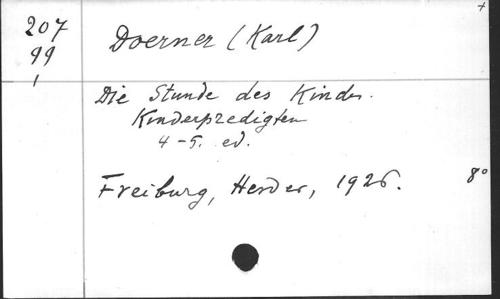 207
99
1
Doerner (Karl)
Die Stunde des Kindes.
Kinderpredigten
4-5. ed.
Freiburg, Herder, 1926.
8°